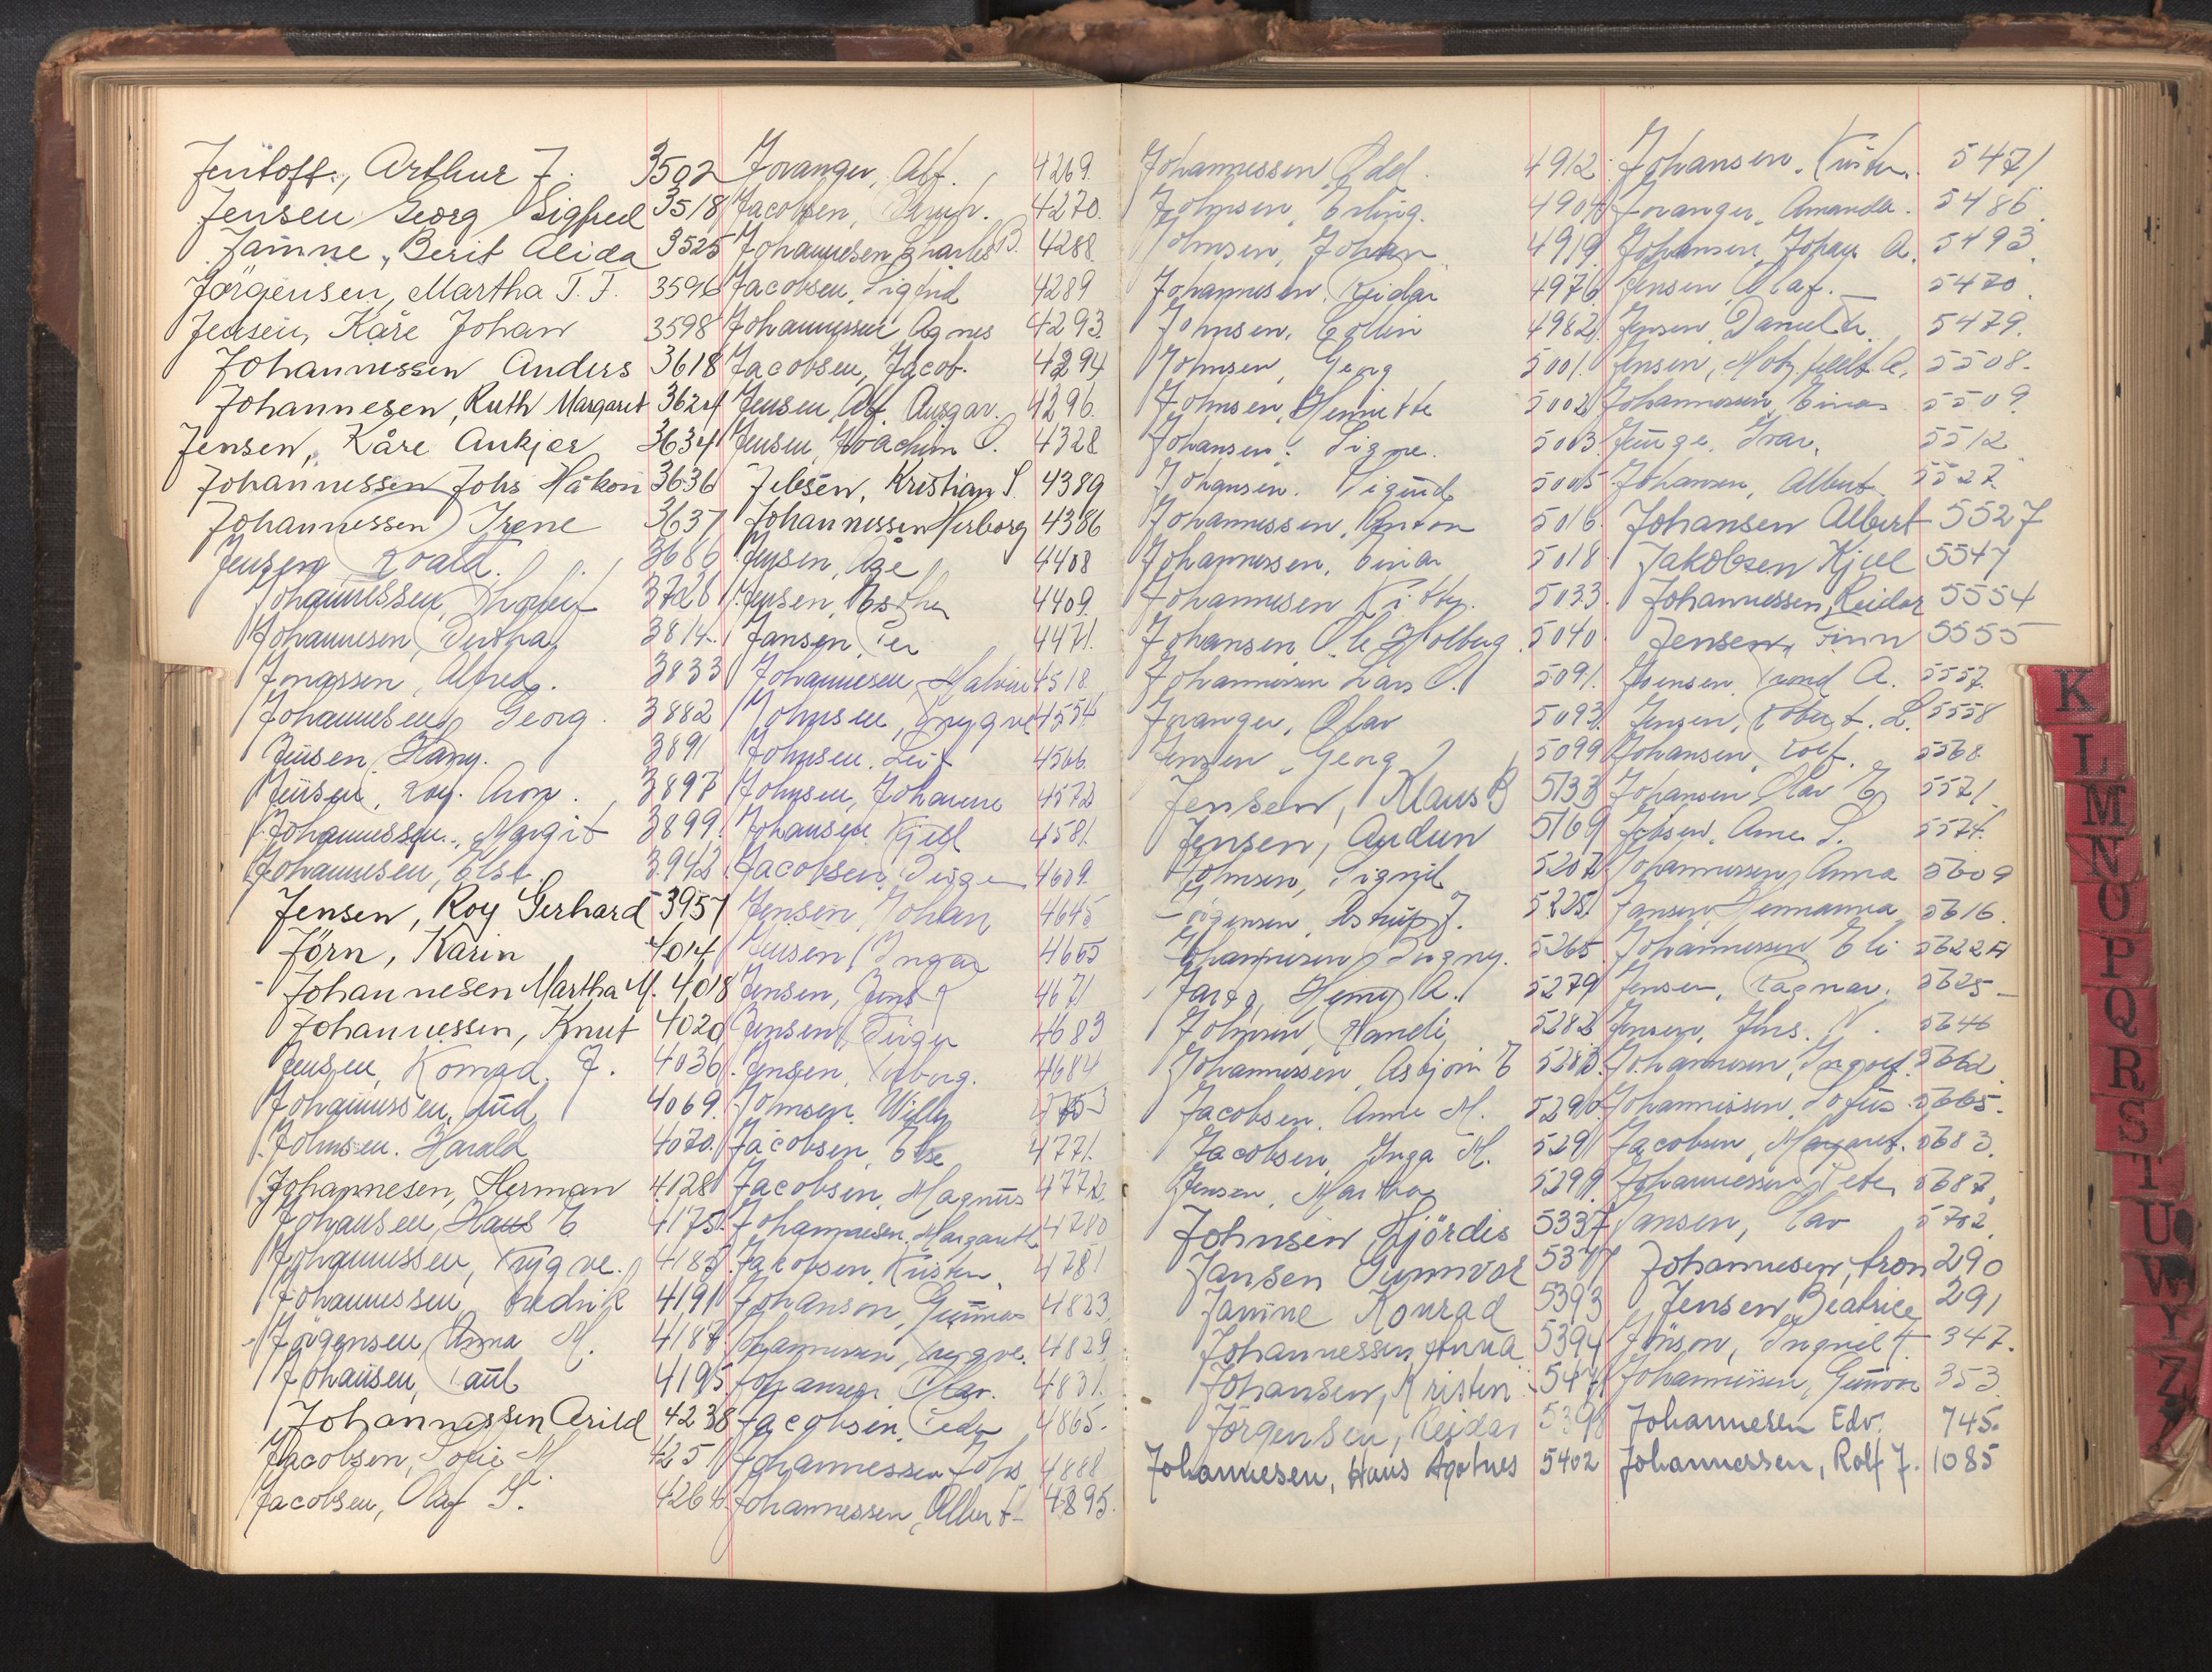 Jentoft, Arthur J. 3502
Jensen Georg Sigfred 3518
Jamne, Berit Alida 3525
Jörgensen, Martha T. J. 3596
Jensen, Kåre Johan 3598
Johannessen Anders 3618
Johannesen, Ruth Margaret 3624
Jensen, Kåre Ankjer 3634
Johannessen Johs Håkon 3636
Johannessen Irene 3637
Jensen, Roald. 3686
Johannessen, Thorleif 3726
Johannesen, Dertha 3814
Jonassen, Alfred. 3833
Johannesen, Georg. 3882
Jensen, Harry. 3891
Jensen, Roy. Aron. 3897
Johannessen, Margit 3899
Johannesen, Else. 3942
Jensen, Roy Gerhard 3957
Jörn, Karin 4014
Johannesen Martha M. 4018
Johannessen, Knut 4020
Jensen, Konrad. J. 4036
Johannessen, 4069
Johnsen. Harald 4070
Johannesen, Herman 4128
Johansen, Hans E 4175
Johannessen, Trygve. 4185
Johannessen, Fredrik 4191
Jörgensen, Anna M. 4187
Johansen, Paul 4195
Johannessen Arild 4238
Jacobsen, Sofie M. 4251
Jacobsen, Olaf S. 4264
Joranger, Alf. 4269
Jacobsen, 4270
Johannesen, Charles B. 4288
Jacobsen, Sigfrid 4289
Johannessen Agnes 4293
Jacobsen, Jacob. 4294
Jensen, Alf Ansgar. 4296
Jensen, Joachim O. 4328
Jebsen, Kristian S. 4389
Johannessen Herborg 4386
Jensen, Åge 4408
Jensen, Esther 4409
Jansen, Per 4471
Johannesen, Malvin 4518
Johnsen, Trygve 4554
Johnsen. Leif 4566
Johnsen, Johanne 4572
Johansen. Kjell 4581
Jacobsen, Birger 4609
Jensen, Johan 4645
Jensen, Ingar 4665
Jensen, Jens 4671
Jensen, Birger 4683
Jensen, 4684
Johnsen, Willy
Jacobsen, Else 4771
Jacobsen, Magnus 4772
Johannesen, Margareth 4780
Jacobsen, Kristen. 4781
Johanson, Gunnar 4823
Johannesen, Trygve. 4829
Johansen Olav. 4831
Jacobsen, Peder 4865
Johannessen Johs 4888
Johannessen, Albert 4895
Johannessen Odd. 4912
Johnsen, Erling. 4904
Johnsen, Johan 4919
Johannesen, Reidar 4976
Johnsen, Collin 4982
Johnsen, Georg 5001
Johnsen, Henriette 5002
Johansen. Signe. 5003
Johansen. Sigurd 5005
Johannessen, Anton 5016
Johannessen, Einar 5018
Johannesen Kitty. 5033
Johansen, Ole Holberg 5040
Johannessen Lars O. 5091
Joranger, Olav 5093
Jensen, Georg J 5099
Jensen, Klaus B 5133
Jensen, Audun 5169
Johnsen, Signyl 5207
Jörgensen, Astrup J. 5225
Johannesen, Dagny. 5265
Henry A. 5279
Johnsen, Randi 5282
Johannessen, Asbjörn E 5283
Jacobsen, Anne M. 5290
Jacobsen, Inga M. 5291
Jensen, Martha 5299
Johnsen Hjördis 5337
Jansen Gunnvor 5377
Jamne Konrad 5393
Johannessen Anna 5394
Johansen, Kristen 5471
Jörgensen, Reidar 5398
Johannesen, Hans Agotnes 5402
Johansen, Kristen. 5471
Joranger, Amanda. 5486
Johansen, Johan A. 5493
Jensen Olaf. 5470
Jensen Daniel 5479
Jensen, A. 5508
Johannesen, Einar 5509
Ivar. 5512
Johansen, Albert 5527
Johansen Albert 5527
Jakobsen Kjell 5547
Johannessen, Reidar 5554
Jensen, Finn 5555
Joensen, Trond A. 5557
Jensen, Robert. L. 5558
Johansen, Rolf. 5568
Johansen Olav E 5571
Jebsen, Arne S. 5574
Johannessen, Anna 5609
Jansen Hermanna 5616
Johannessen Eli 5622A
Jensen, Ragnar. 5625
Jensen, Jhs. N. 5646
Johannesen, Ingolf. 5662
Johannessen, Sofus 5665
Jacobsen, Margaret. 5683
Johannessen Peter 5687
Jansen, Olav 5702
Johannesen, Aron 290
Jensen Beatrice 291
Jonson, Ingrid 347
Johannessen, Gunvor 353
Johannesen Edv. 745
Johannessen, Rolf J. 1085
K
L
M
N
O
P
Q
R
S
T
U
W
Y
Z